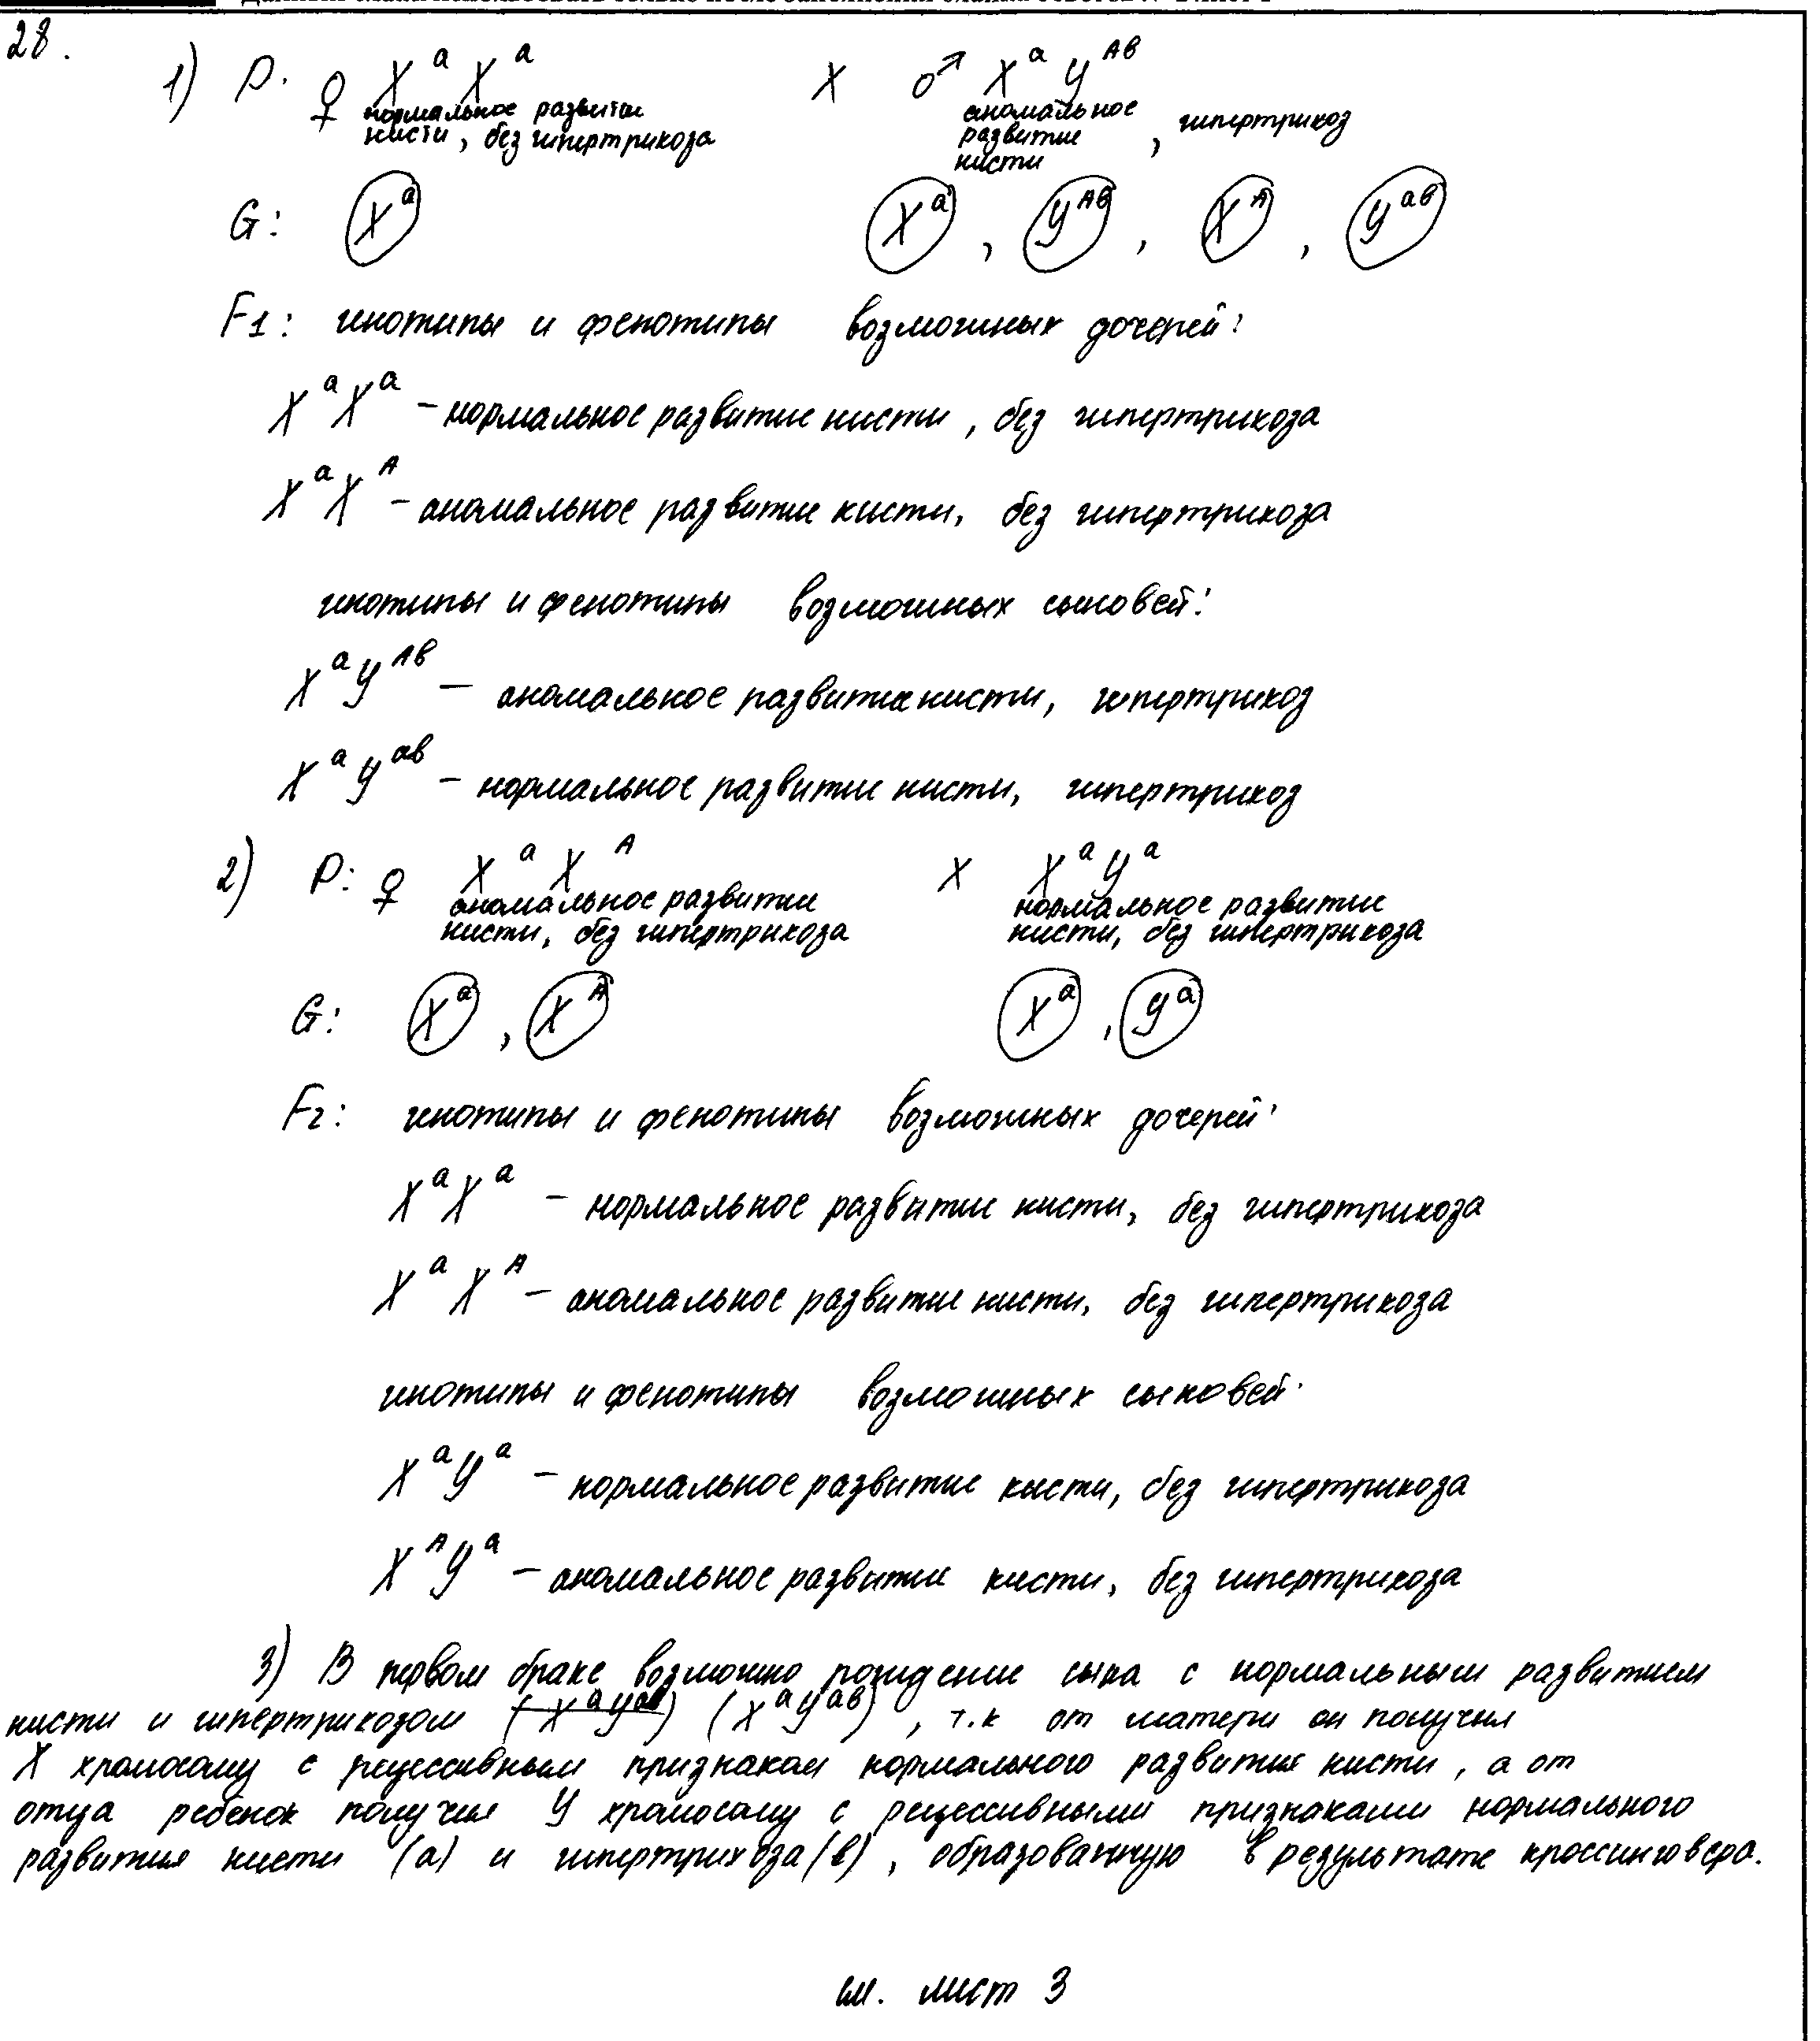 28.
1) P: ♀ XᵃXᵃ X ♂ XᵃYᴬᵇ
нормальное развитие кисти, без гипертрихоза
аномальное развитие кисти, гипертрихоз
G: Xᵃ Xᵃ, Yᴬᵇ, Xᴬ, Yᵃᵇ
F1: генотипы и фенотипы возможных дочерей:
XᵃXᵃ – нормальное развитие кисти, без гипертрихоза
XᵃXᴬ – аномальное развитие кисти, без гипертрихоза
генотипы и фенотипы возможных сыновей:
XᵃYᴬᵇ – аномальное развитие кисти, гипертрихоз
XᵃYᵃᵇ – нормальное развитие кисти, гипертрихоз
2) P: ♀ XᵃXᴬ X XᵃYᵃ
аномальное развитие кисти, без гипертрихоза
нормальное развитие кисти, без гипертрихоза
G: Xᵃ, Xᴬ Xᵃ, Yᵃ
F2: генотипы и фенотипы возможных дочерей:
XᵃXᵃ – нормальное развитие кисти, без гипертрихоза
XᵃXᴬ – аномальное развитие кисти, без гипертрихоза
генотипы и фенотипы возможных сыновей:
XᵃYᵃ – нормальное развитие кисти, без гипертрихоза
XᴬYᵃ – аномальное развитие кисти, без гипертрихоза
3) В первом браке возможно рождение сына с нормальным развитием
кисти и гипертрихозом (XᵃYᵃᵇ), т.к от матери он получил
X хромосому с рецессивным признаком нормального развития кисти, а от
отца ребенок получил Y хромосому с рецессивными признаками нормального
развития кисти (а) и гипертрихоза (в), образованную в результате кроссинговера.
см. лист 3